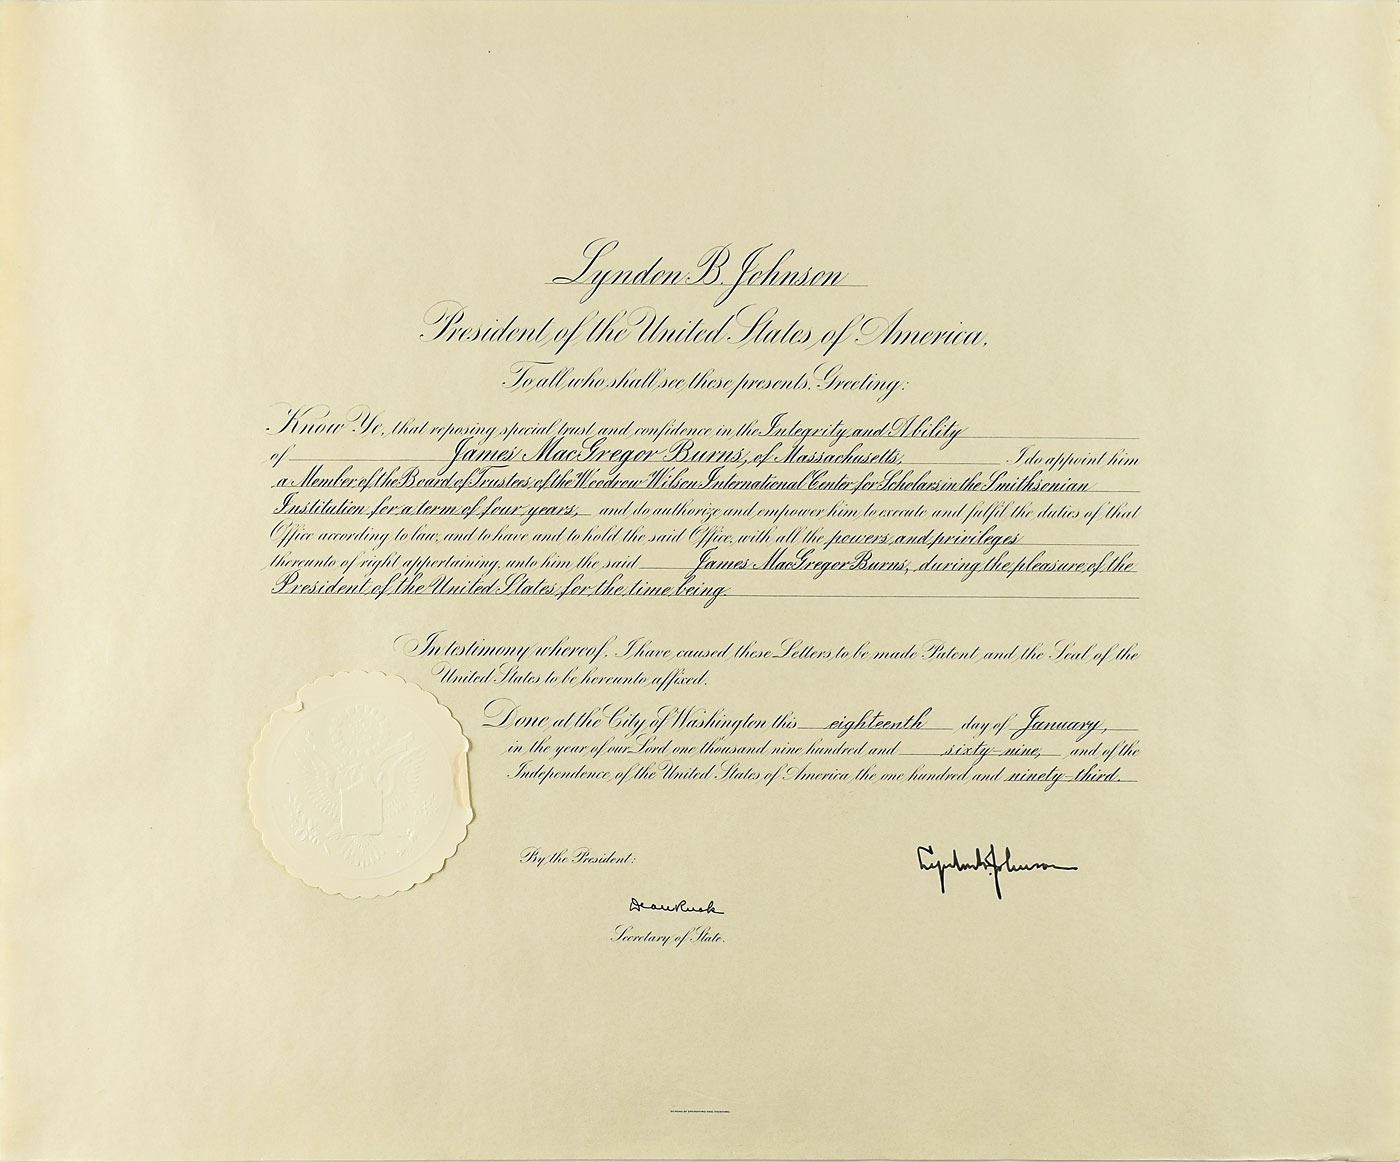 Lyndon B. Johnson
President of the United States of America,
To all who shall see these presents, Greeting:
Know Ye, that reposing special trust and confidence in the Integrity and Ability
of James MacGregor Burns, of Massachusetts, I do appoint him
a Member of the Board of Trustees of the Woodrow Wilson International Center for Scholars in the Smithsonian
Institution for a term of four years, and do authorize and empower him to execute and fulfil the duties of that
Office according to law, and to have and to hold the said Office, with all the powers and privileges
thereunto of right appertaining, unto him the said James MacGregor Burns, during the pleasure of the
President of the United States for the time being.
In testimony whereof, I have caused these Letters to be made Patent and the Seal of the
United States to be hereunto affixed.
Done at the City of Washington this eighteenth day of January,
in the year of our Lord one thousand nine hundred and sixty-nine, and of the
Independence of the United States of America the one hundred and ninety-third.
By the President:
Lyndon B. Johnson
Dean Rusk
Secretary of State.
BUREAU OF ENGRAVING AND PRINTING